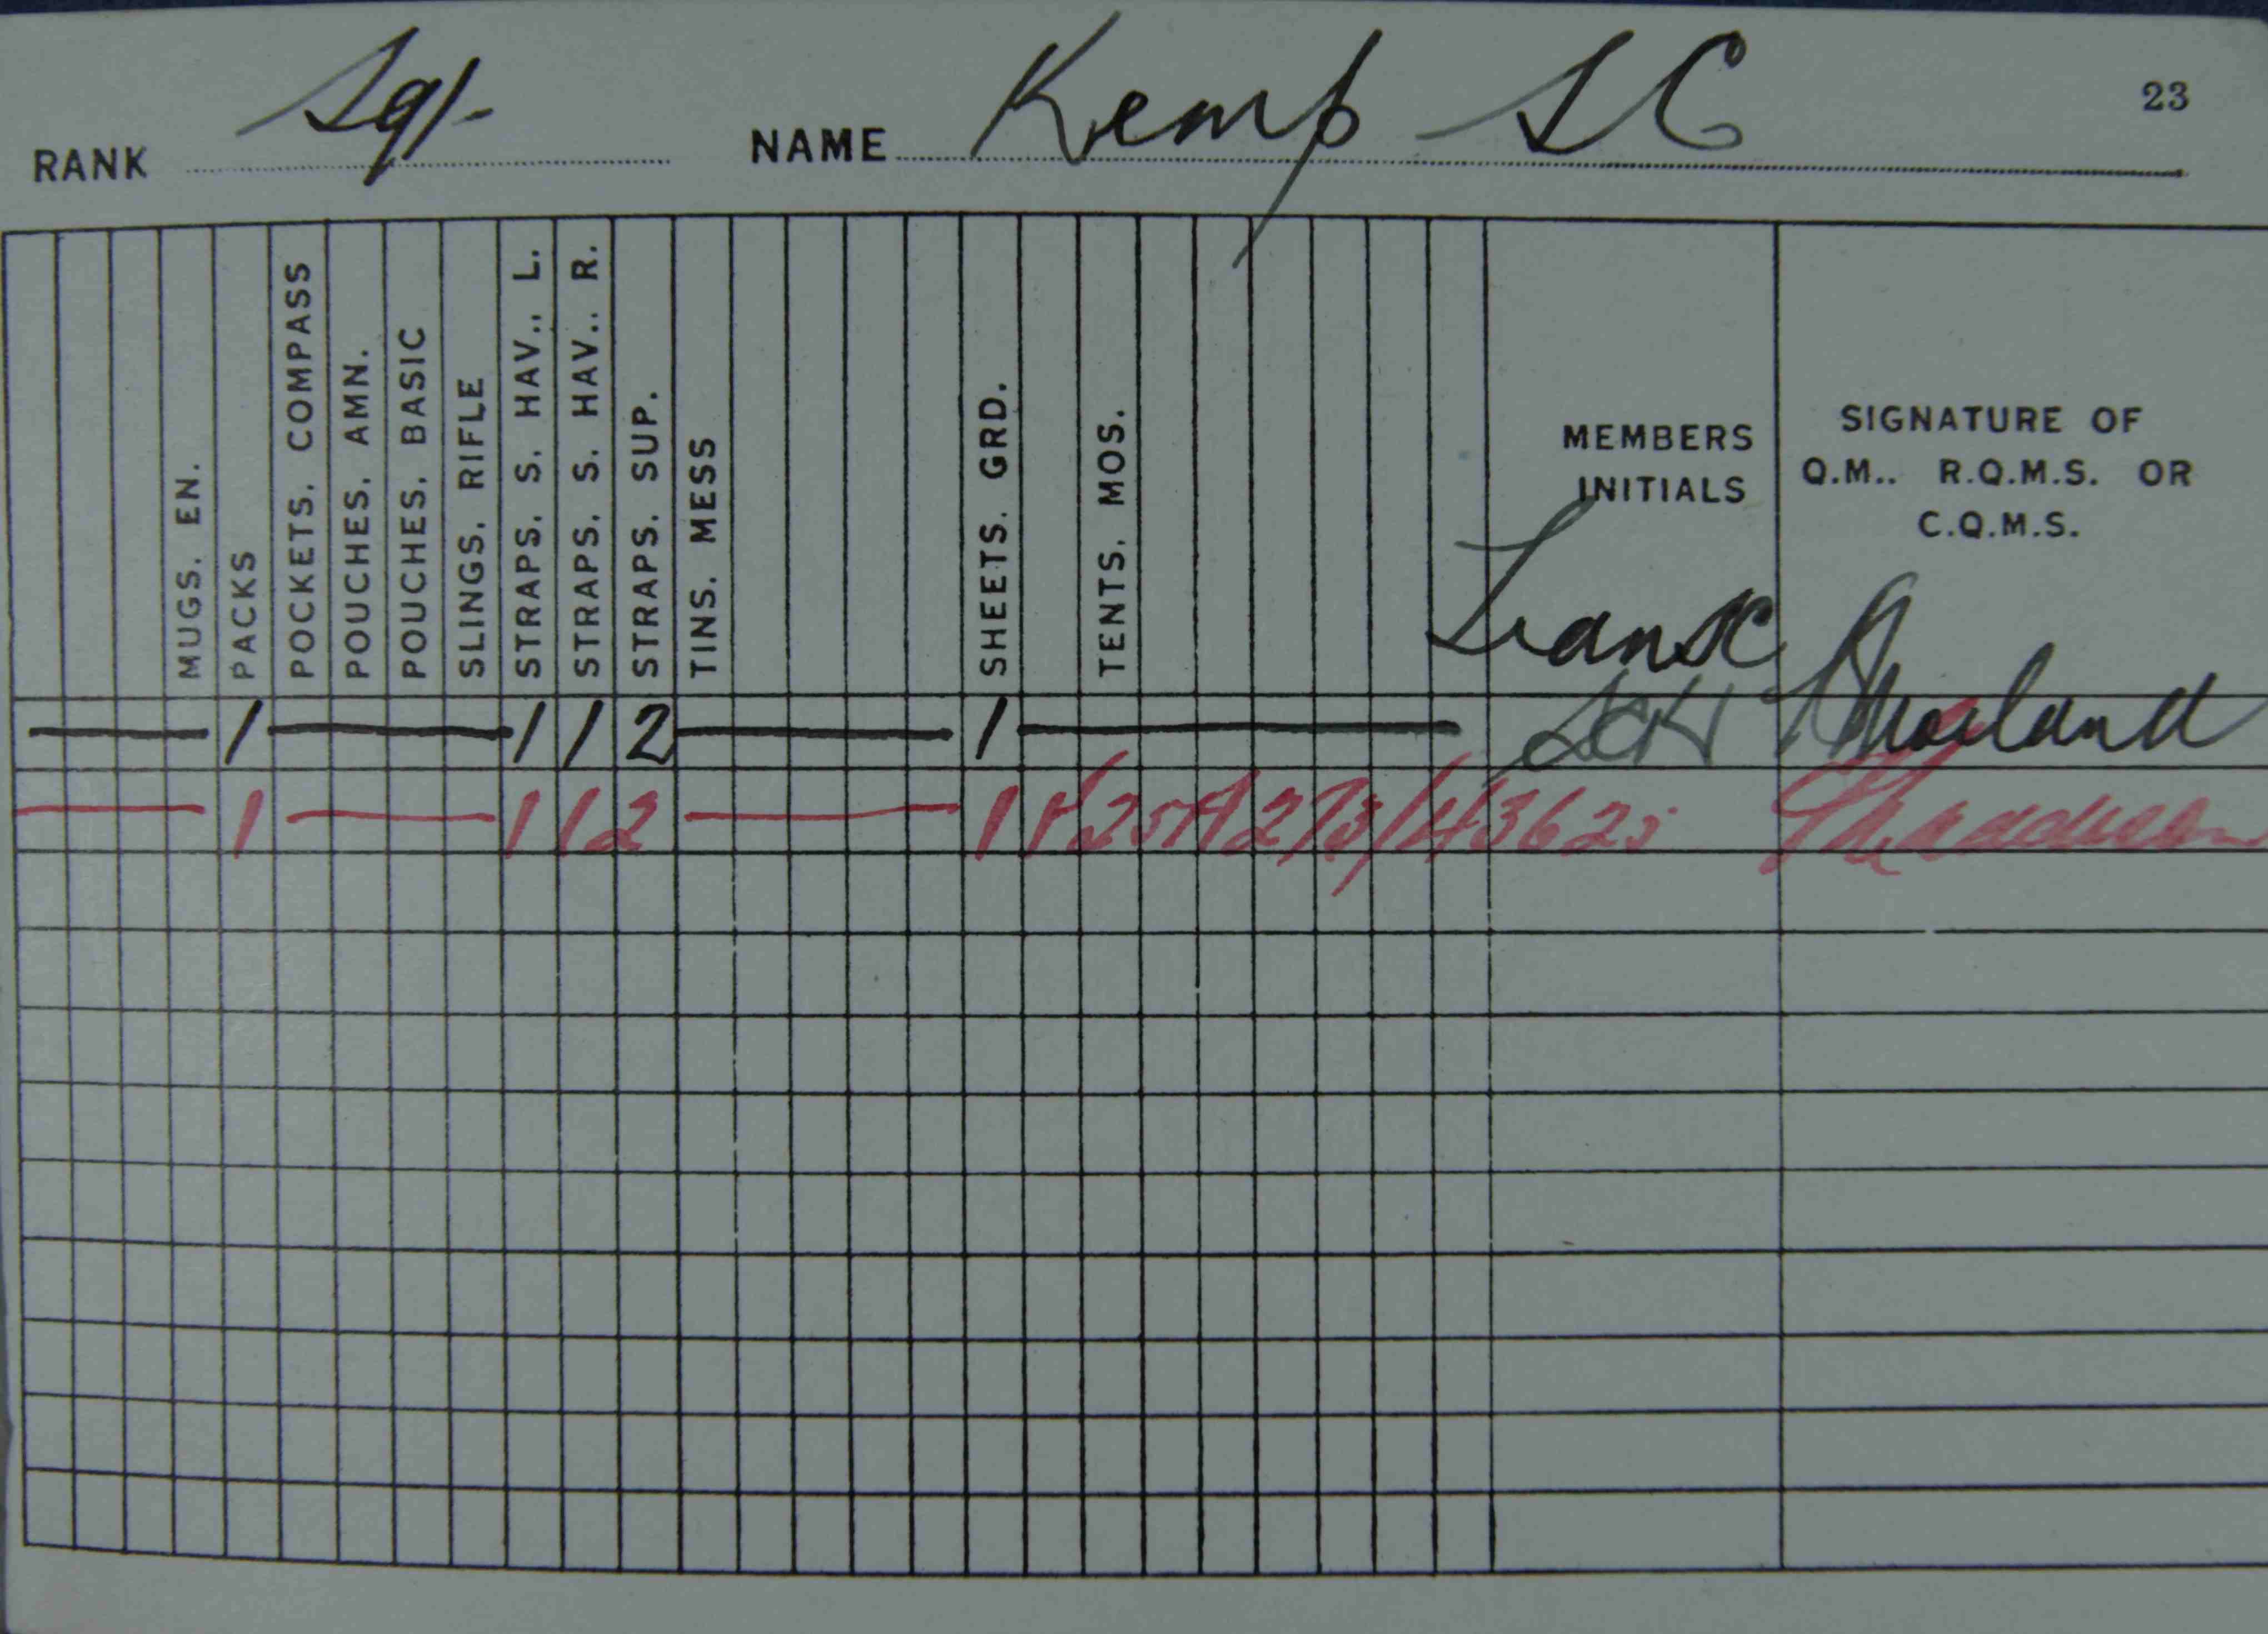 23
RANK Sgt. NAME Kemp
MUGS. EN.
PACKS
POCKETS. COMPASS
POUCHES. AMN.
POUCHES. BASIC
SLINGS. RIFLE
STRAPS. S. HAV., L.
STRAPS. S. HAV.. R.
STRAPS. SUP.
TINS. MESS
SHEETS. GRD.
TENTS. MOS.
MEMBERS
INITIALS
SIGNATURE OF
Q.M.. R.Q.M.S. OR
C.Q.M.S.
1 1 1 2 1
1 1 1 2 1